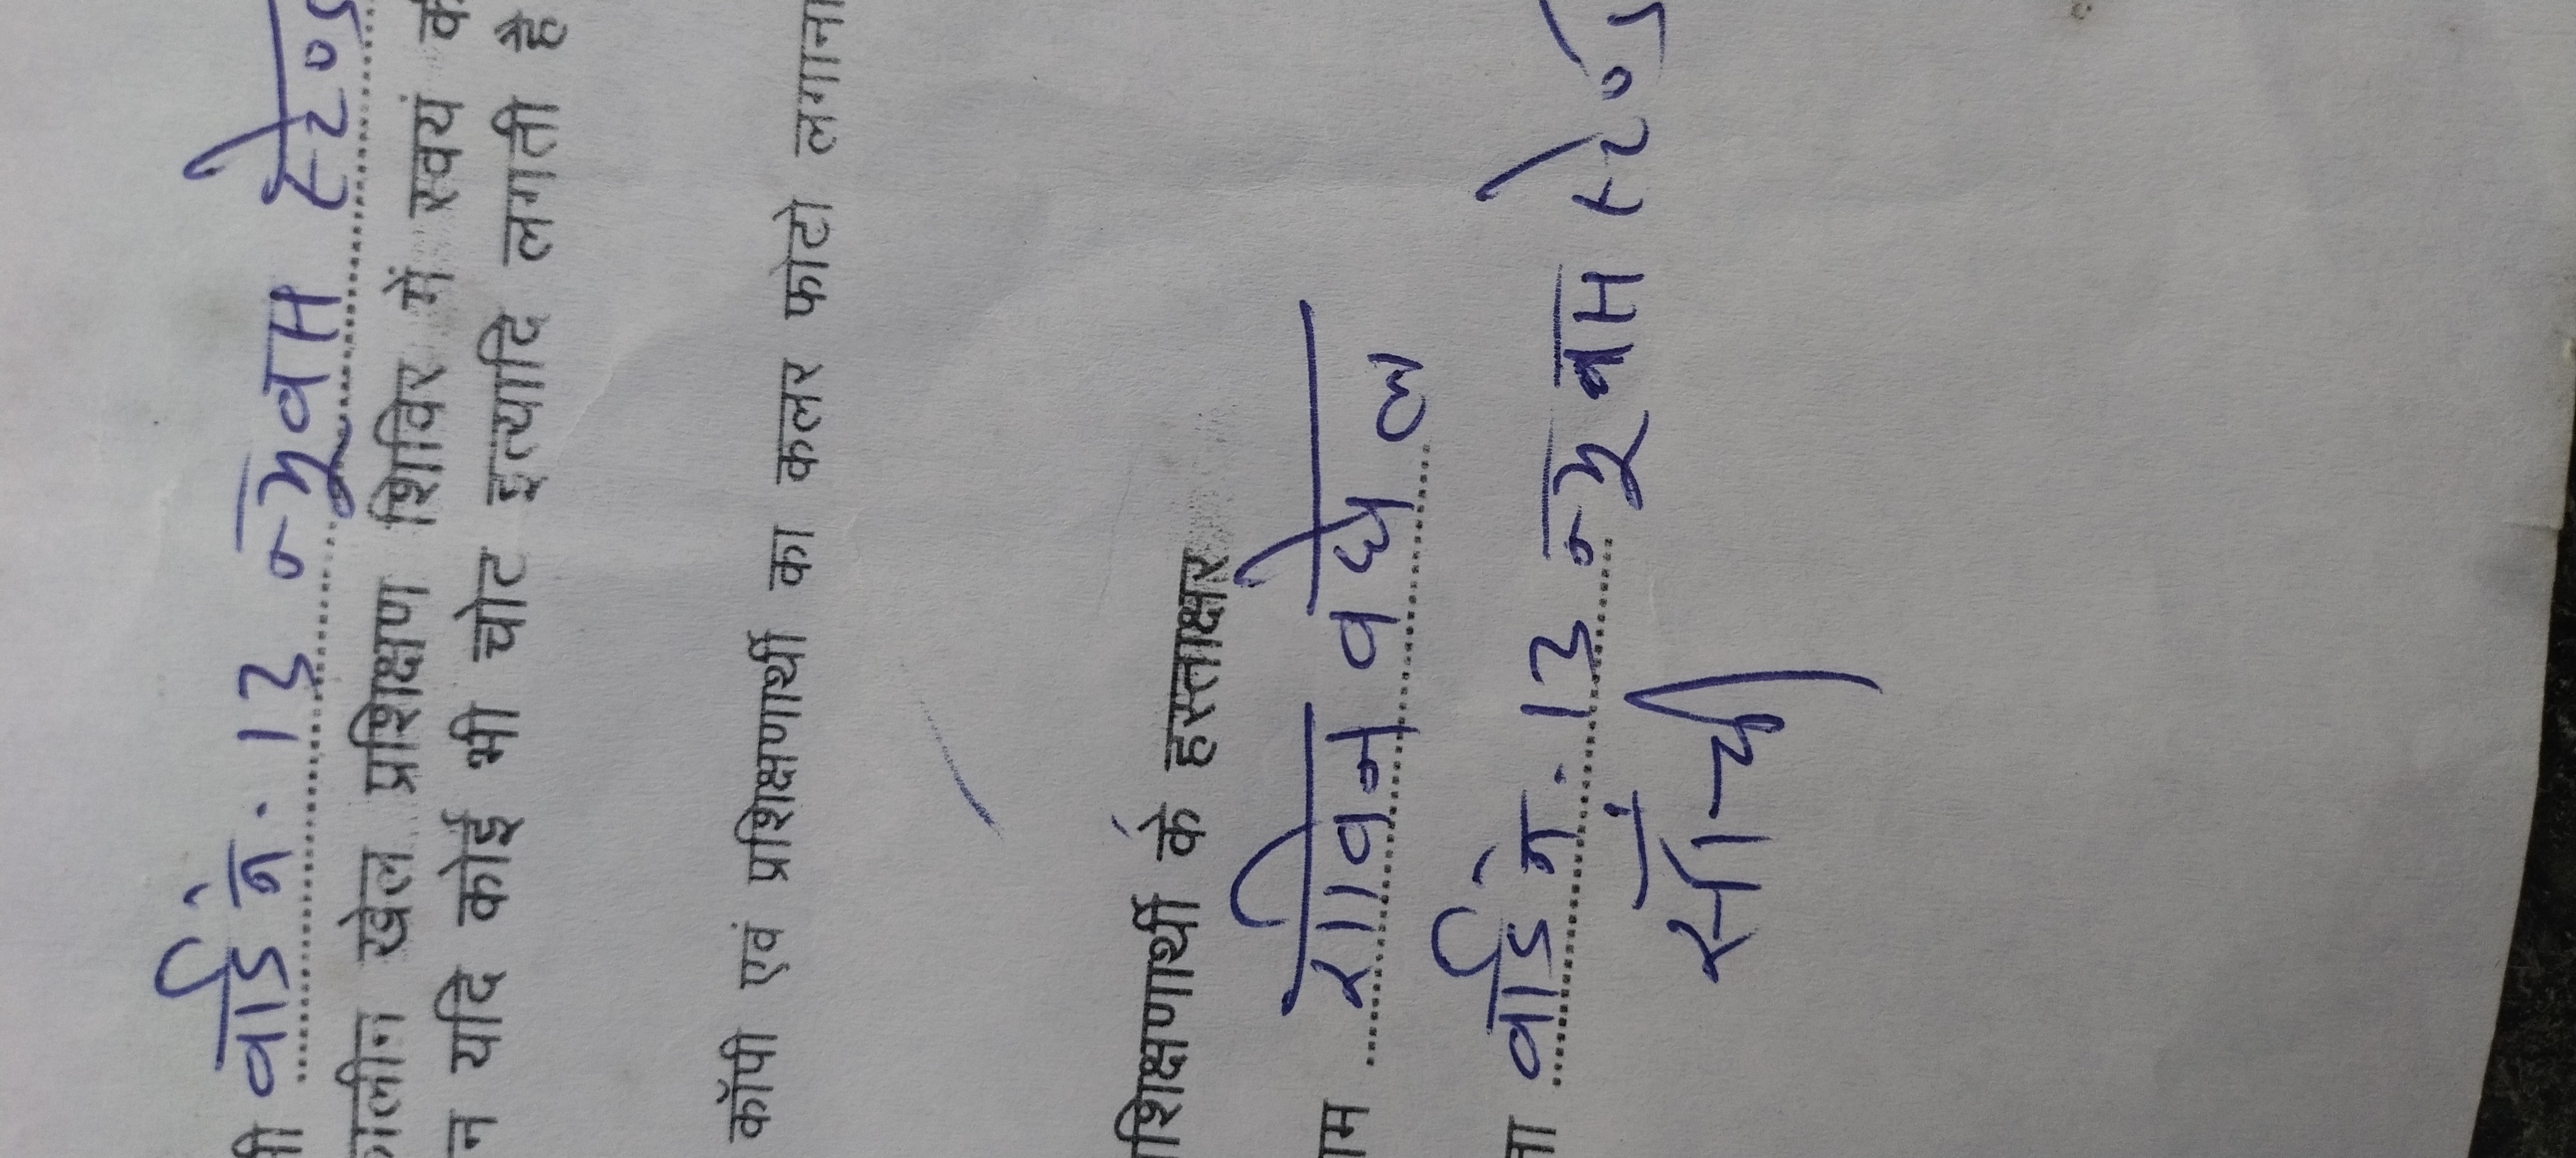 नी वार्ड नं. 13 न्यू बस स्टेण्ड
कालीन खेल प्रशिक्षण शिविर में स्वयं क
न यदि कोई भी चोट इत्यादि लगती है
कॉपी एवं प्रशिक्षणार्थी का कलर फोटो लगाना
शिक्षणार्थी के हस्ताक्षर
ाम वघेल
ता वार्ड नं. 13 न्यू बस स्टेण्ड
साँची